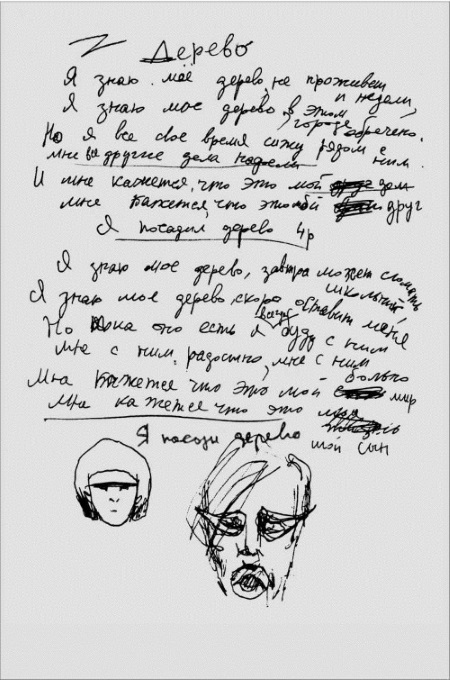 Дерево
Я знаю мое дерево, не проживет и недели,
Я знаю мое дерево в этом городе обречено.
Но я все свое время сижу рядом с ним.
мне все другие дела надоели
И мне кажется, что это мой дом
мне кажется, что это мой друг
Я посадил дерево 4р
Я знаю мое дерево, завтра может сломать школьник
Я знаю мое дерево скоро оставит меня
Но пока оно есть я всегда буду с ним
мне с ним радостно, мне с ним больно
Мне кажется что это мой мир
Мне кажется что это
мой сын
Я посади дерево